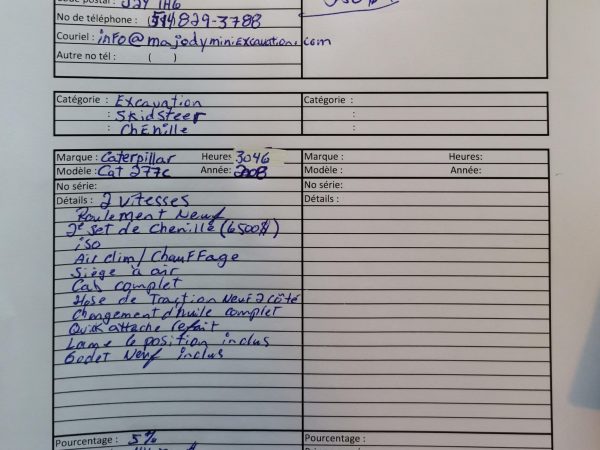 Code postal : J2Y 1H6
No de téléphone : (514) 829-3788
Courriel : info@majodyminiexcavation.com
Autre no tél : ( )
Catégorie : Excavation Catégorie :
: Skidsteer :
: Chenille :
Marque : Caterpillar Heures 3046 Marque : Heures:
Modèle : Cat 277c Année: 2008 Modèle : Année:
No série: No série:
Détails : 2 vitesses Détails :
Roulement Neuf
2e set de chenille (6500$)
iso
Air clim/Chauffage
Siège à air
Cab complet
Hose de Traction Neuf 2 côté
Changement d'huile complet
Quick attache refait
Lame 6 position inclus
Godet Neuf inclus
Pourcentage : 5% Pourcentage :